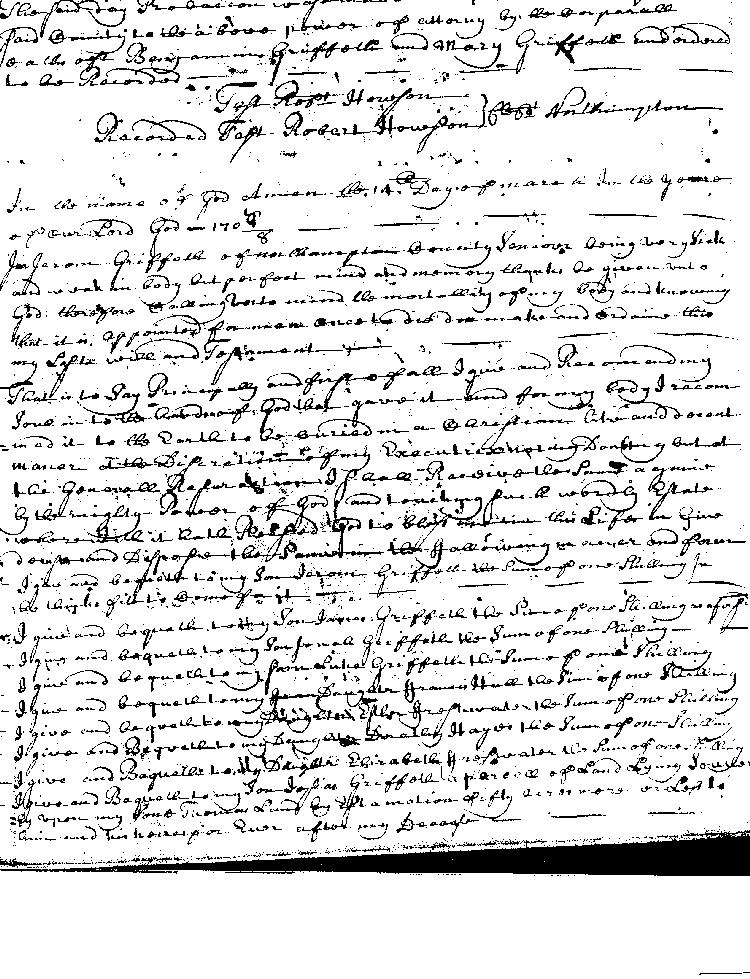 The said day Probation was made
Said County to the above power of attorny by the Corporall
oaths of Benjamine Griffeth and Mary Griffeth and ordered
to be Recorded
Test Robt Howson
Recorded Test Robert Howson Northampton
In the name of God Amen the 14th Day of march in the yeare
of our Lord God 170
I Jerom Griffeth of northampton County Seniour being very Sick
and weak in body but perfect mind and memory thanks be given unto
God therefore Calling unto mind the mortallity of my body and knowing
that it is appointed for men once to die doe make and ordaine this
my Laste will and Testament
That is to Say Principally and first of all I give and Recomend my
Soul into the hands of God that gave it and for my body I recom
mend it to the Earth to be buried in a Christian like and decent
maner at the Discretion of my Execut nothing Doubting but at
the Generall Resurection I shall Receive the Same againe
by the mighty Power of God and touching Such wordly Estate
where with it hath Pleased God to bless me in this Life I Give
devise and Dispose the Same in the following maner and form
I give and bequeth to my Son Jerom Griffeth the Sume of one Shilling
he thinks fitt to Come for it
I give and bequeth to my Son James Griffeth the Sume of one Shilling
I give and bequeth to my Son Griffeth the Sum of one Shilling
I give and bequeth to my Son Luke Griffeth the Sum of one Shilling
I give and bequeth to my Daughter Hall the Sum of one Shilling
I give and beqeth to my Daughter Freshwater the Sum of one Shilling
I give and Bequeth to my Daughter Dorathy Hayes the Sum of one Shilling
I give and Bequeth to my Daughter Elizabeth Freshwater the Sum of one Shilling
I give and Bequeth to my Son Griffeth a parcell of Land Lying
upon my Sone Thomas Land by Estamation fifty acres more or Less to
him and his heirs for Ever after my Decease